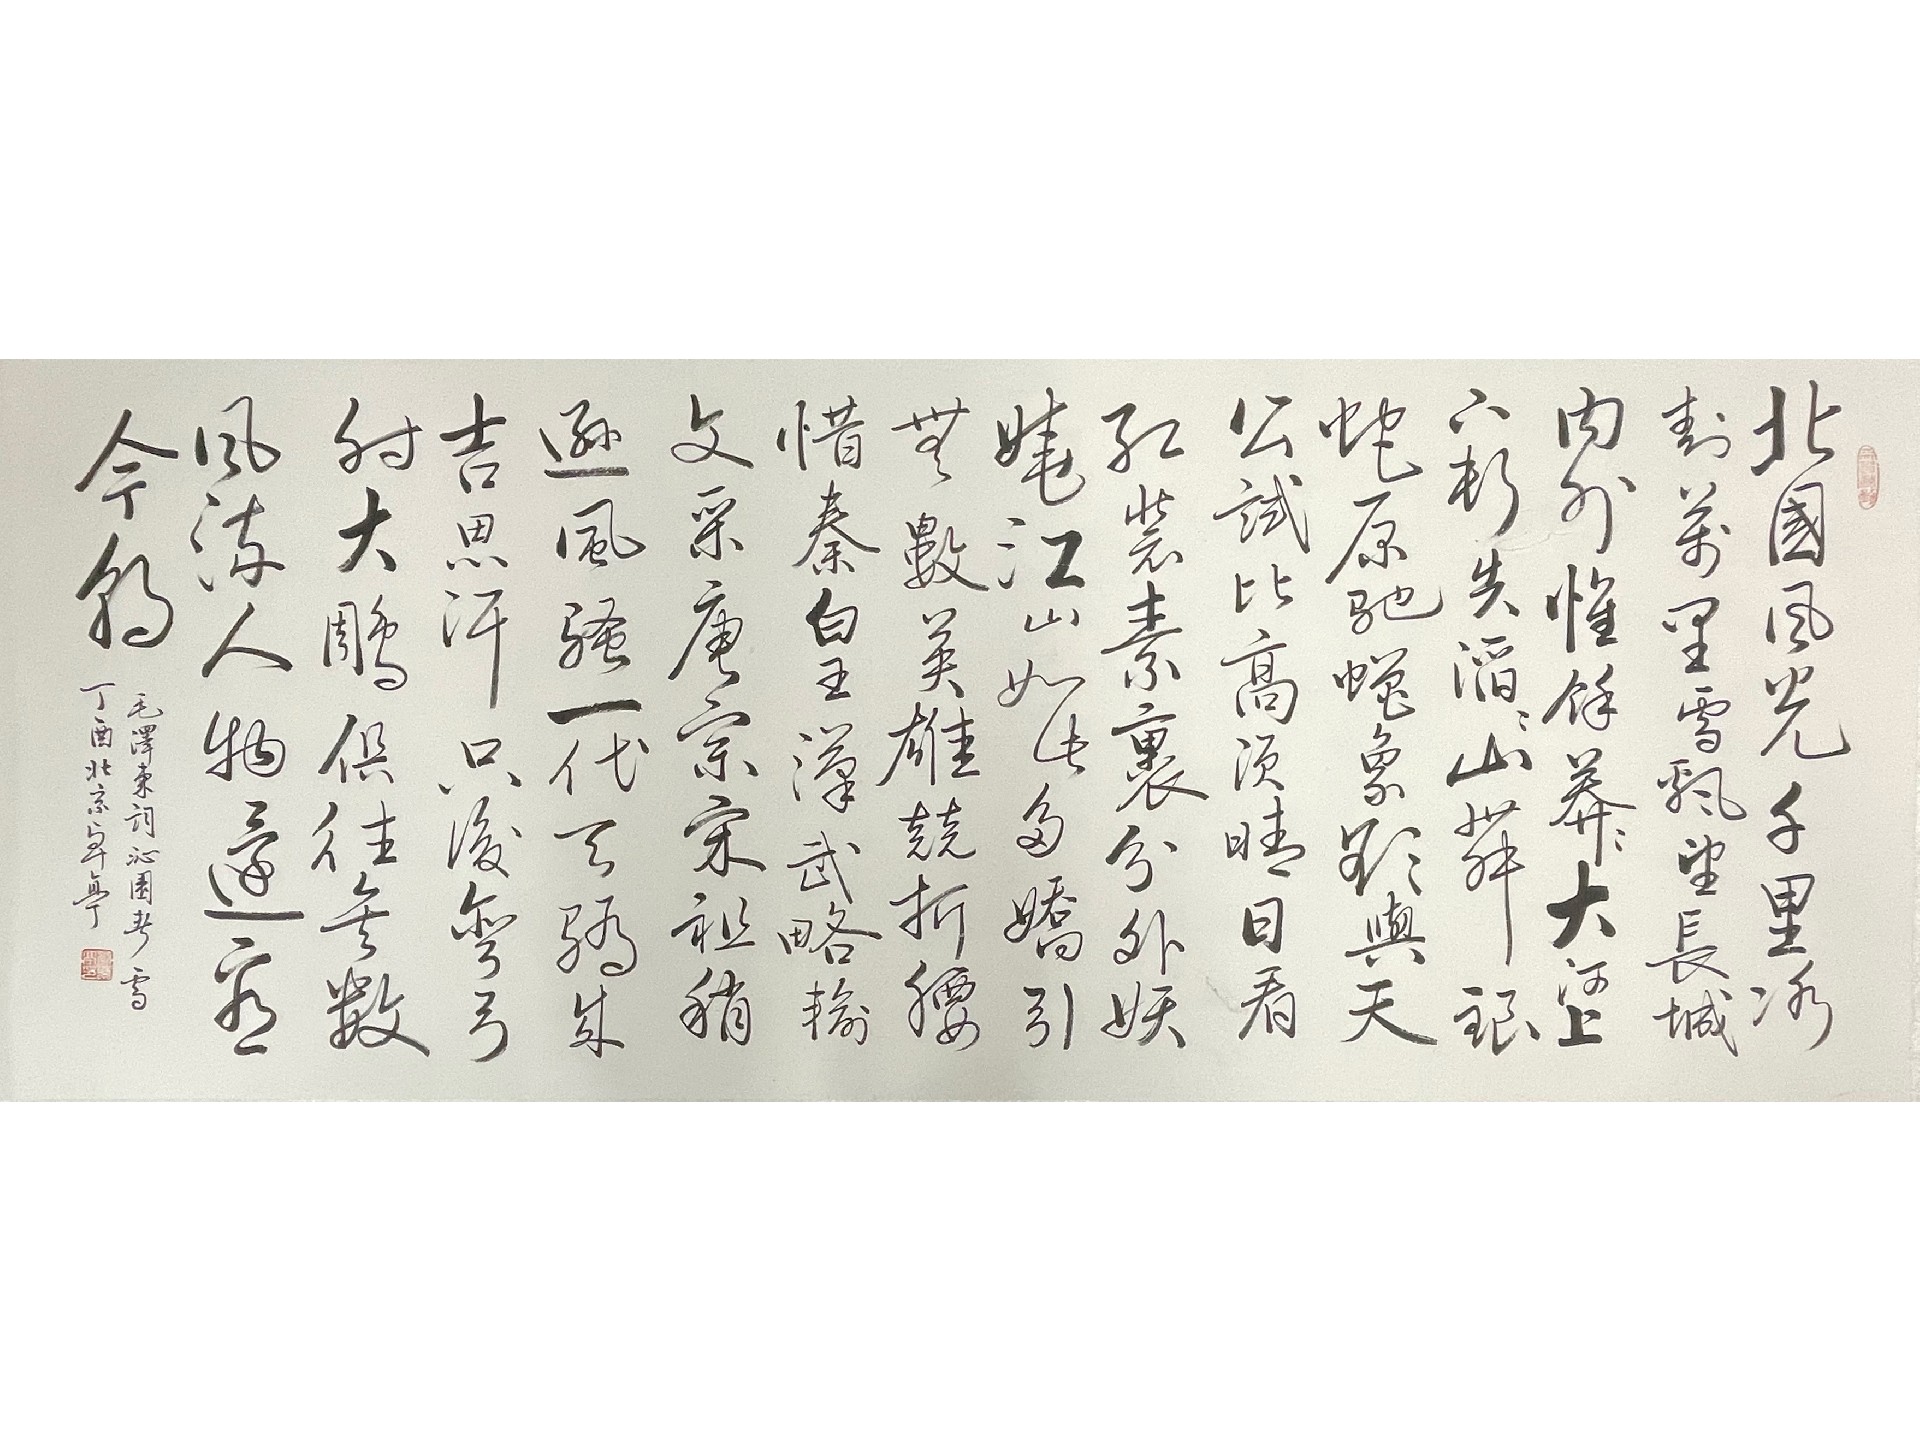 北國風光千里冰
封萬里雪飄望長城
内外惟餘莽〻大河上
下頓失滔〻山舞銀
蛇原馳蠟象欲與天
公試比高須晴日看
紅裝素裹分外妖
嬈江山如此多嬌引
無數英雄競折腰
惜秦皇漢武略輸
文采唐宗宋祖稍
遜風騷一代天驕成
吉思汗只識彎弓
射大鵰俱往矣數
風流人物還看
今朝
毛澤東詞沁園春雪
丁酉北京